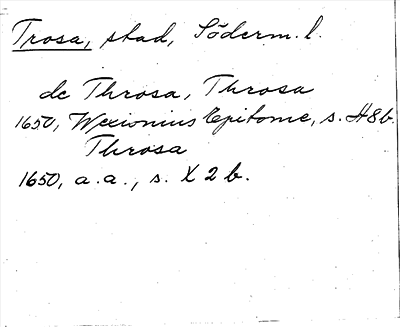 Trosa, stad, Söderm. l.
de Throsa, Throsa
1650, Wexionius Epitome, s. H8b.
Throsa
1650, a.a., s. X 2 b.